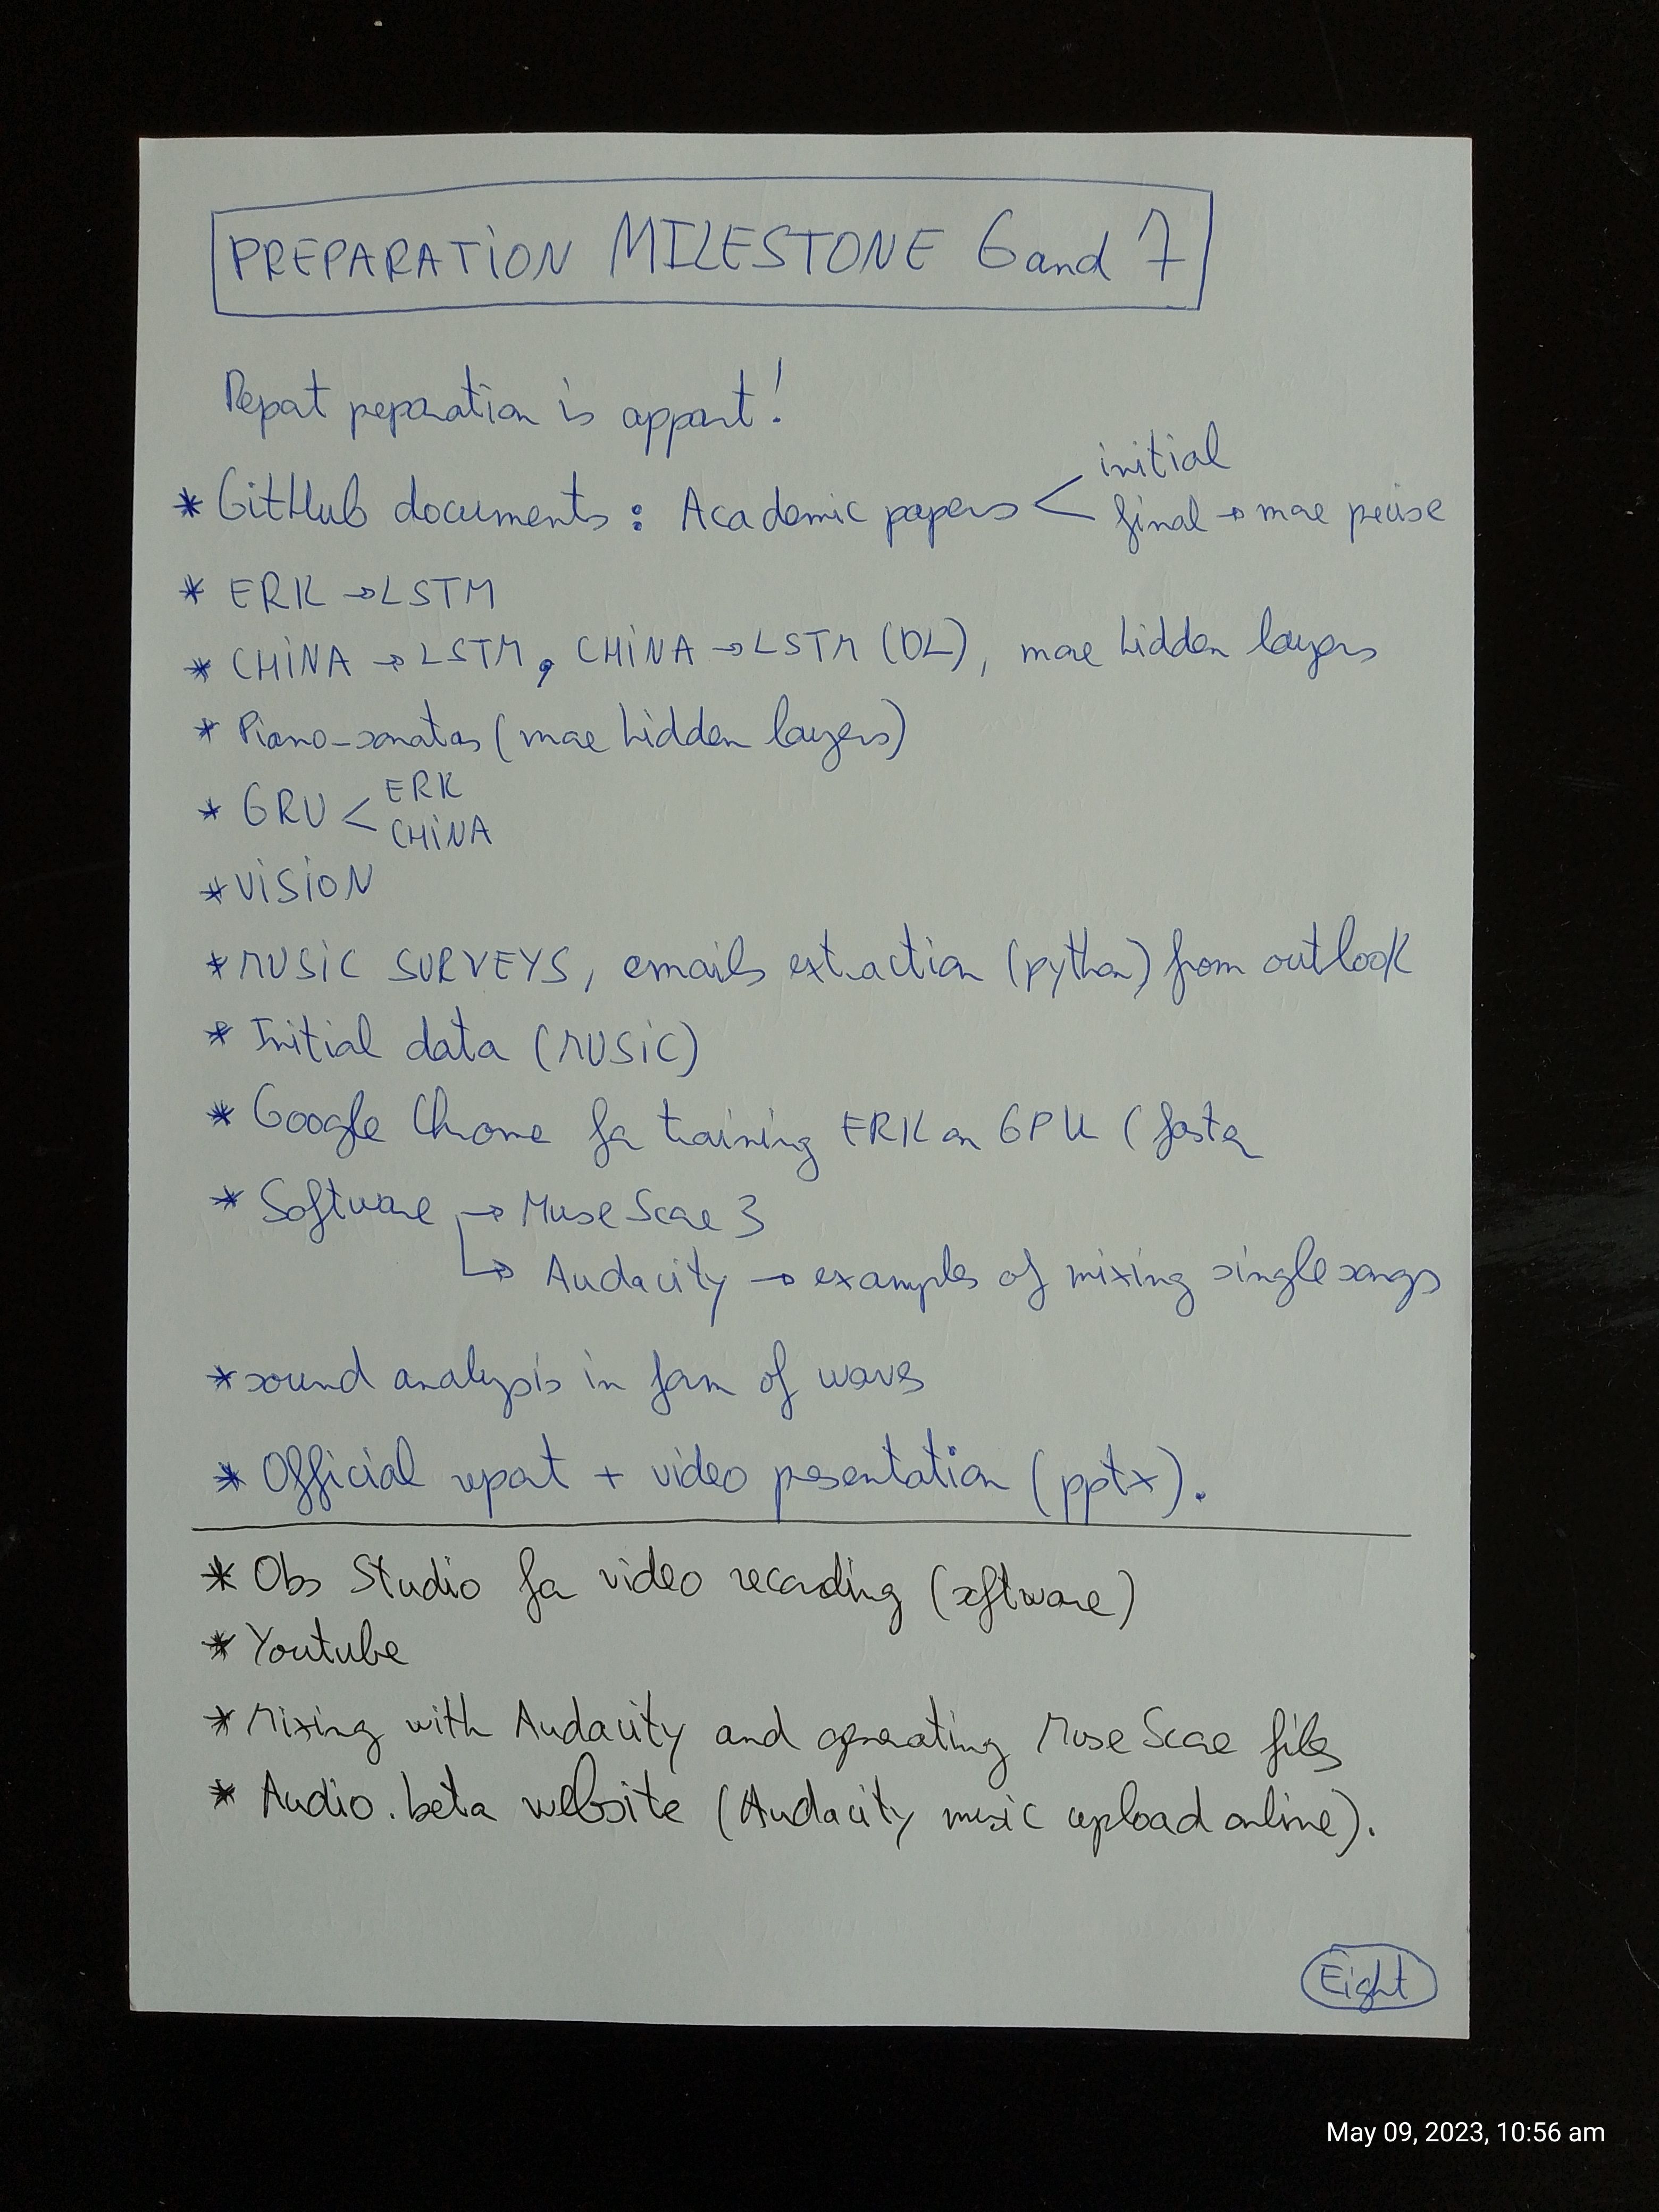 PREPARATION MILESTONE 6 and 7
Report preparation is appart!
* GitHub documents : Academic papers < initial
final → more precise
* ERK → LSTM
* CHINA → LSTM, CHINA → LSTM (DL), more hidden layers
* Piano-sonatas (more hidden layers)
* GRU < ERK
CHINA
* VISION
* MUSIC SURVEYS, emails extraction (python) from outlook
* Initial data (MUSIC)
* Google Chrome for training ERK on GPU (faster
* Software → MuseScore 3
↳ Audacity → examples of mixing single songs
* sound analysis in form of waves
* Official report + video presentation (pptx).
* Obs Studio for video recording (software)
* Youtube
* Mixing with Audacity and operating MuseScore files
* Audio.beta website (Audacity music upload online).
Eight
May 09, 2023, 10:56 am